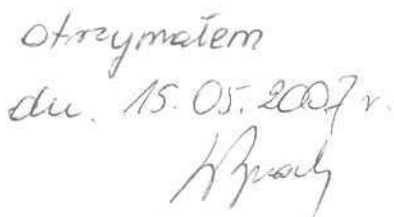 otrzymałem
dn. 15.05.2007 r.